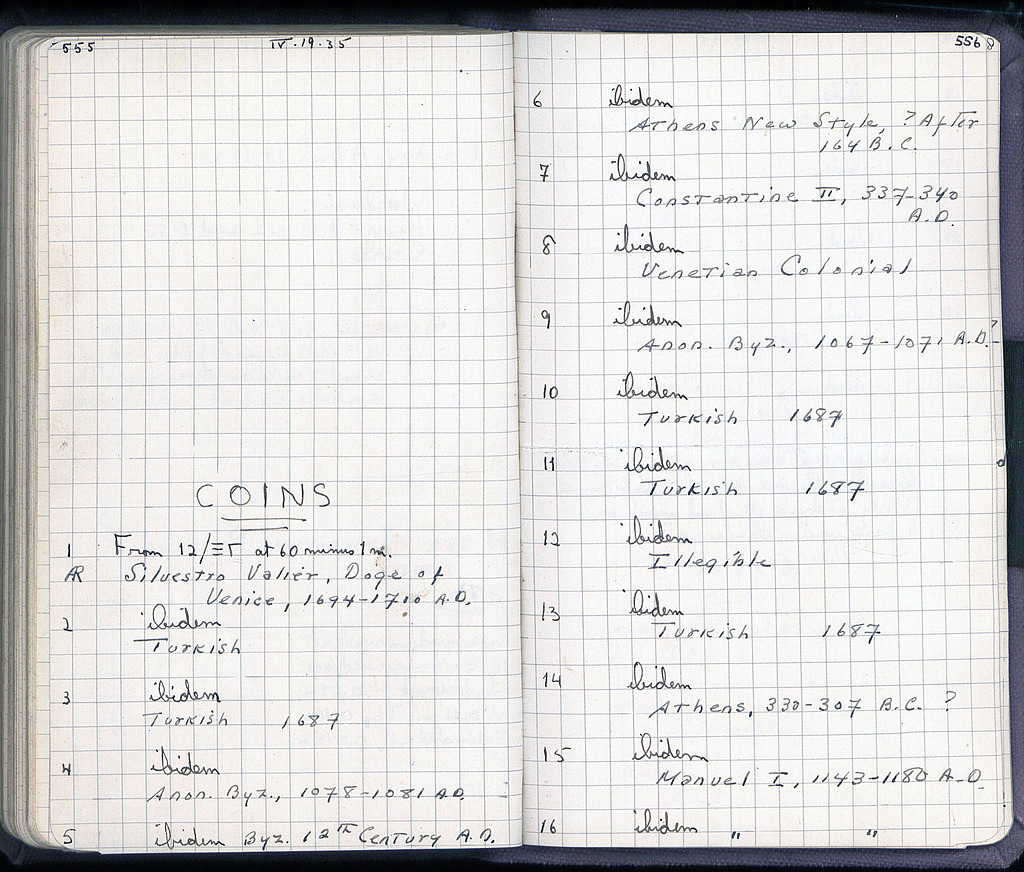 555
IV.19.35
COINS
1 From 12/ΞΓ at 60 minus 1 m.
AR Silvestro Valier, Doge of
Venice, 1694-1700 A.D.
2 ibidem
Turkish
3 ibidem
Turkish 1687
4 ibidem
Anon. Byz., 1078-1081 A.D.
5 ibidem Byz. 12TH Century A.D.
556
6 ibidem
Athens New Style, ?After
164 B.C.
7 ibidem
Constantine II, 337-340
A.D.
8 ibidem
Venetian Colonial
9 ibidem
Anon. Byz., 1067-1071 A.D.?
10 ibidem
Turkish 1687
11 ibidem
Turkish 1687
12 ibidem
Illegible
13 ibidem
Turkish 1687
14 ibidem
Athens, 330-307 B.C. ?
15 ibidem
Manuel I, 1143-1180 A.D
16 ibidem " "